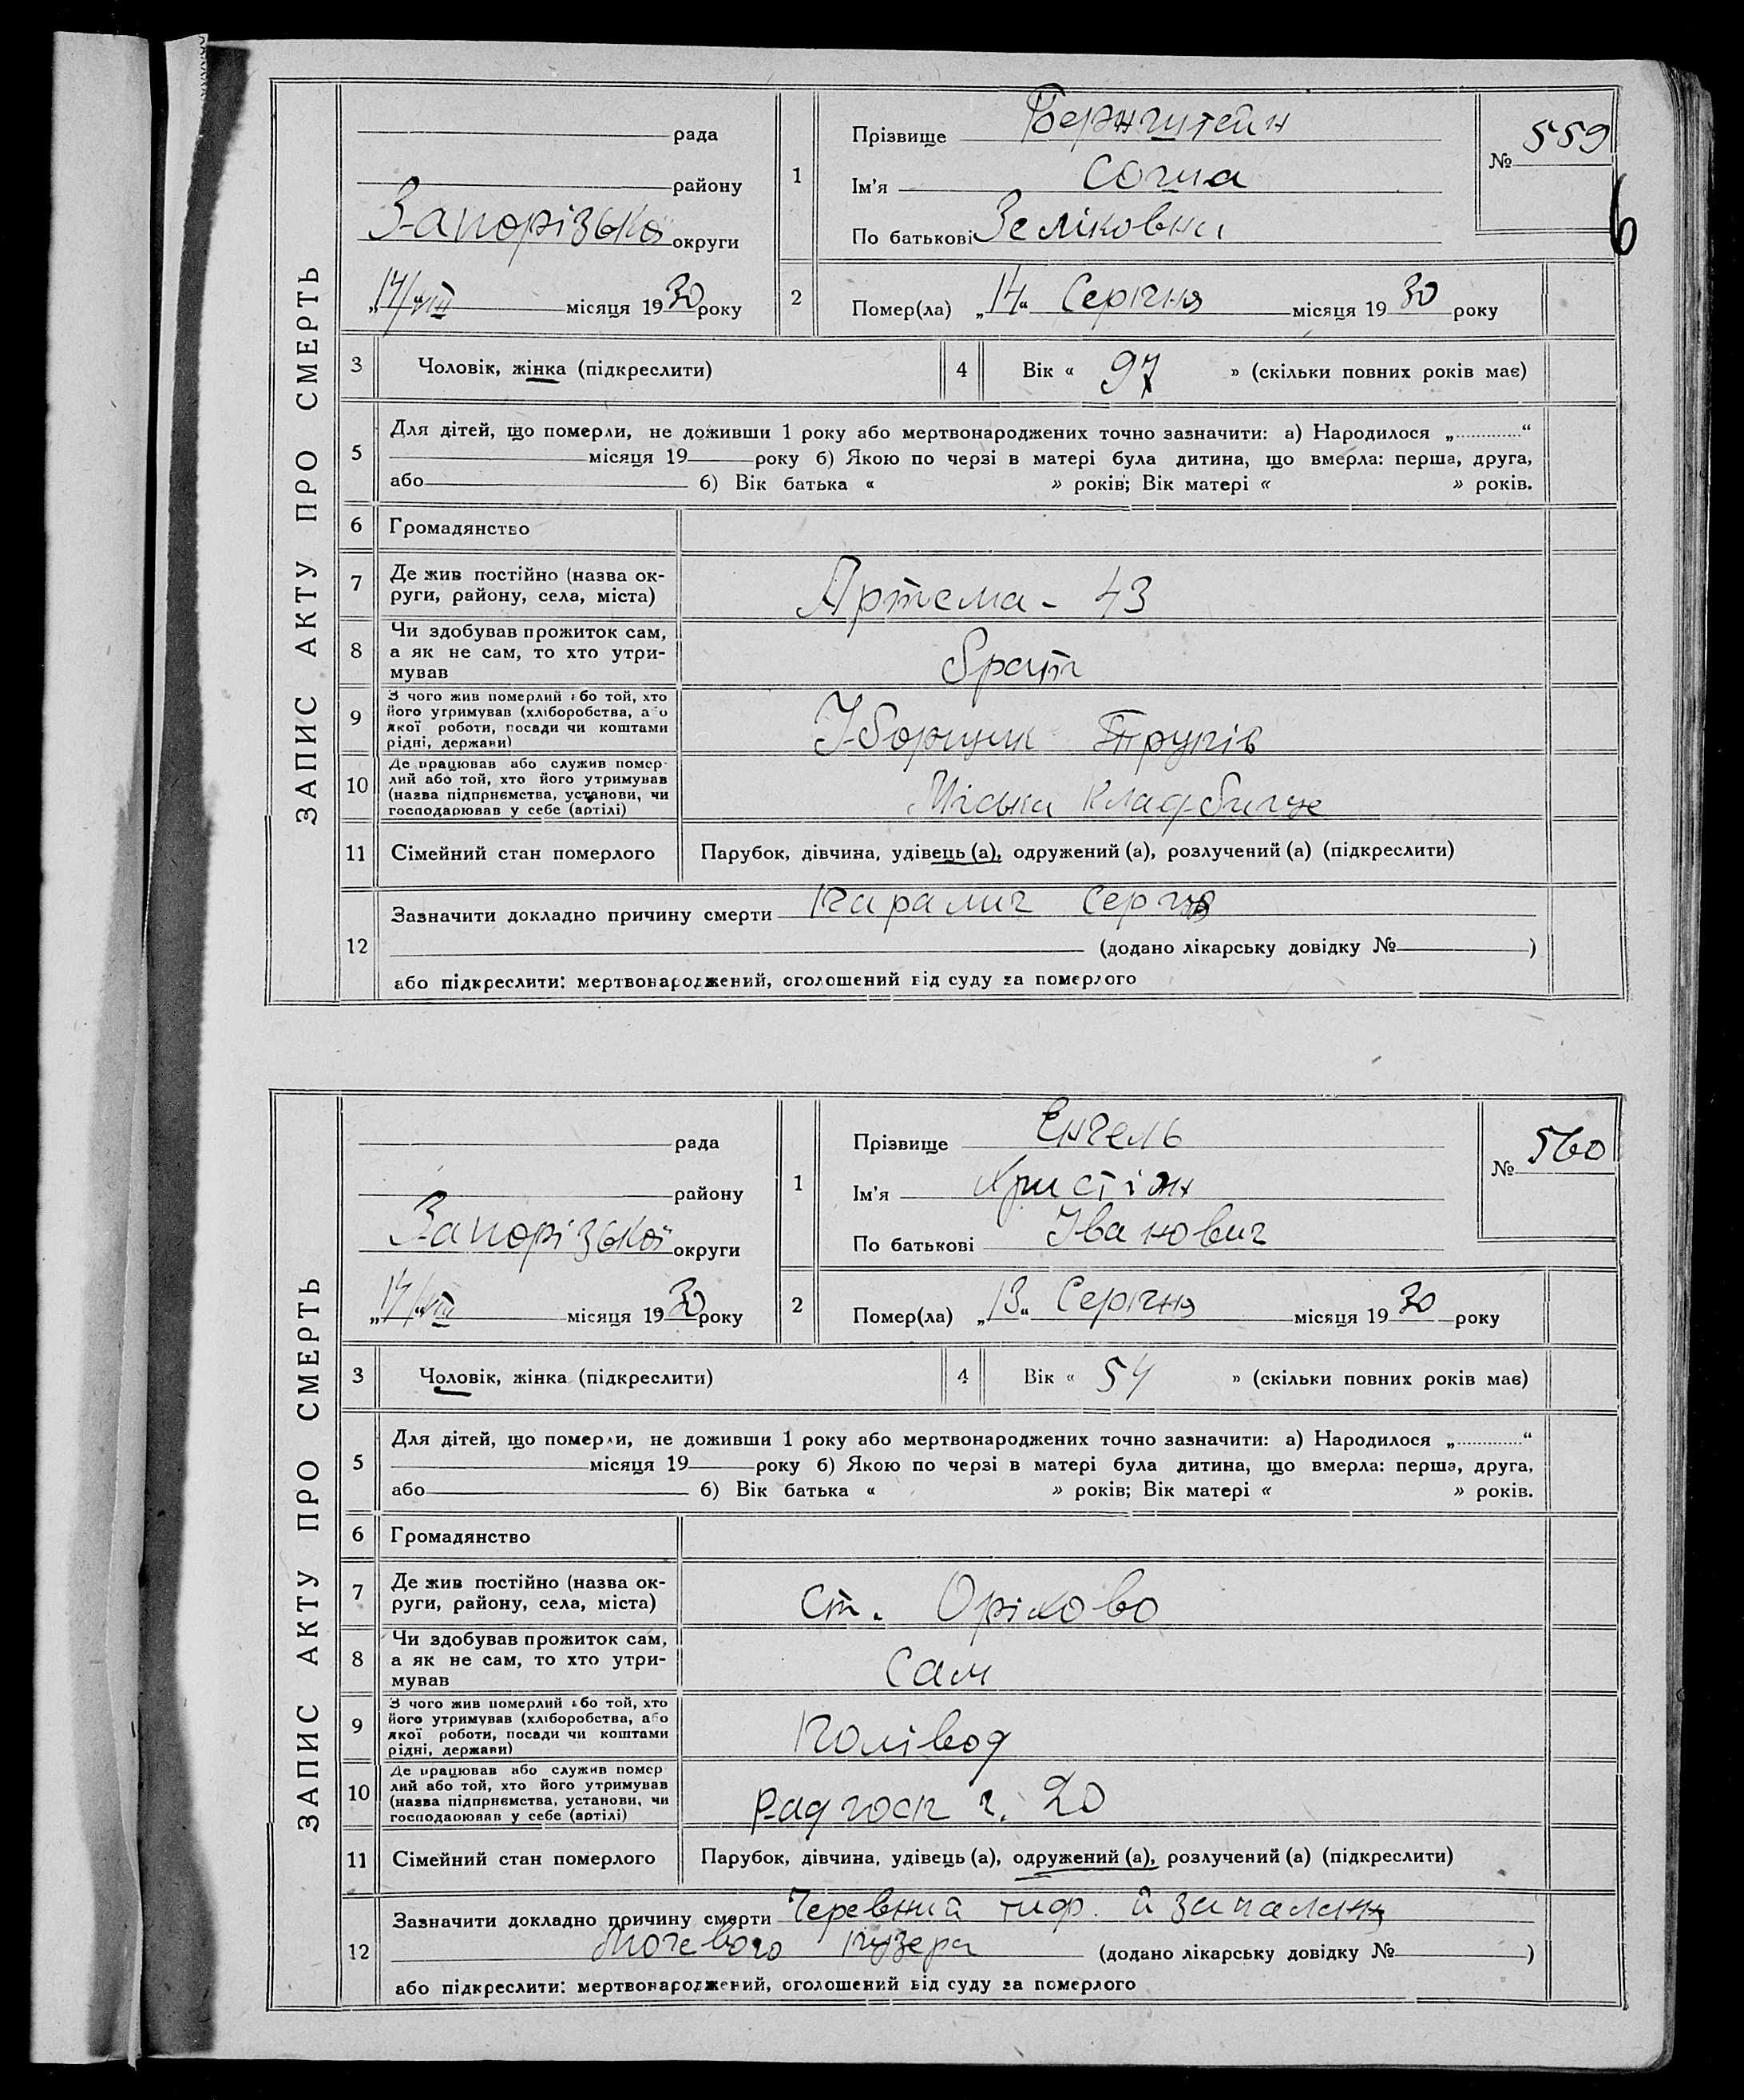 ЗАПИС АКТУ ПРО СМЕРТЬ
рада
району
Запорізької округи
„17/VIII місяця 1930 року
1
Прізвище Бернштейн
Ім'я Соня
По батькові Зеліковна
№ 559
6
2
Помер(ла) „14“ Серпня місяця 1930 року
3 Чоловік, жінка (підкреслити)
4 Вік « 97 » (скільки повних років має)
5 Для дітей, що померли, не доживши 1 року або мертвонароджених точно зазначити: а) Народилося „............“
місяця 19 року б) Якою по черзі в матері була дитина, що вмерла: перша, друга,
або б) Вік батька « » років; Вік матері « » років.
6 Громадянство
7 Де жив постійно (назва ок-
руги, району, села, міста)
Артема - 43
8 Чи здобував прожиток сам,
а як не сам, то хто утри-
мував
брат
9 З чого жив померлий або той, хто
його утримував (хліборобства, або
якої роботи, посади чи коштами
рідні, держави)
Уборщик Трупів
10 Де працював або служив помер-
лий або той, хто його утримував
(назва підприємства, установи, чи
господарював у себе (артілі)
Міське кладбище
11 Сімейний стан померлого
Парубок, дівчина, удівець (а), одружений (а), розлучений (а) (підкреслити)
12 Зазначити докладно причину смерти параліч серця
(додано лікарську довідку № )
або підкреслити: мертвонароджений, оголошений від суду за померлого
ЗАПИС АКТУ ПРО СМЕРТЬ
рада
району
Запорізької округи
„17/VIII місяця 1930 року
1
Прізвище Енгель
Ім'я Христіян
По батькові Іванович
№ 560
2
Помер(ла) „13“ Серпня місяця 1930 року
3 Чоловік, жінка (підкреслити)
4 Вік « 54 » (скільки повних років має)
5 Для дітей, що померли, не доживши 1 року або мертвонароджених точно зазначити: а) Народилося „............“
місяця 19 року б) Якою по черзі в матері була дитина, що вмерла: перша, друга,
або б) Вік батька « » років; Вік матері « » років.
6 Громадянство
7 Де жив постійно (назва ок-
руги, району, села, міста)
ст. Оріхово
8 Чи здобував прожиток сам,
а як не сам, то хто утри-
мував
сам
9 З чого жив померлий або той, хто
його утримував (хліборобства, або
якої роботи, посади чи коштами
рідні, держави)
Полівод
10 Де працював або служив помер
лий або той, хто його утримував
(назва підприємства, установи, чи
господарював у себе (артілі)
радгосп ч. 20
11 Сімейний стан померлого
Парубок, дівчина, удівець (а), одружений (а), розлучений (а) (підкреслити)
12 Зазначити докладно причину смерти Черевний тиф. й запалння
мочевого пузеря (додано лікарську довідку № )
або підкреслити: мертвонароджений, оголошений від суду за померлого